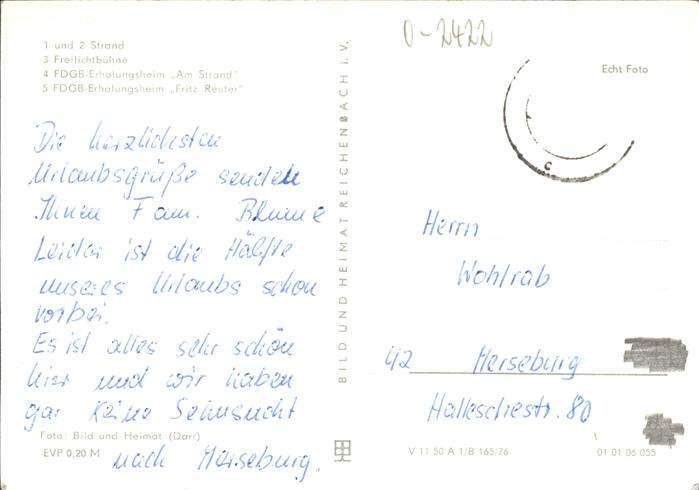 0-2422
1 und 2 Strand
3 Freilichtbühne
4 FDGB-Erholungsheim „Am Strand"
5 FDGB-Erholungsheim „Fritz Reuter"
Echt Foto
Die herzlichsten
Urlaubsgrüße senden
Ihnen Fam. Blume
Leider ist die Hälfte
unseres Urlaubs schon
vorbei.
Es ist alles sehr schön
hier und wir haben
gar keine Sehnsucht
nach Merseburg.
Foto: Bild und Heimat (Darr)
EVP 0,20 M
BILD UND HEIMAT REICHENBACH i. V.
Herrn
Wohlrab
42 Merseburg
Halleschestr. 80
V 11 50 A 1/B 165/76
01 01 06 055